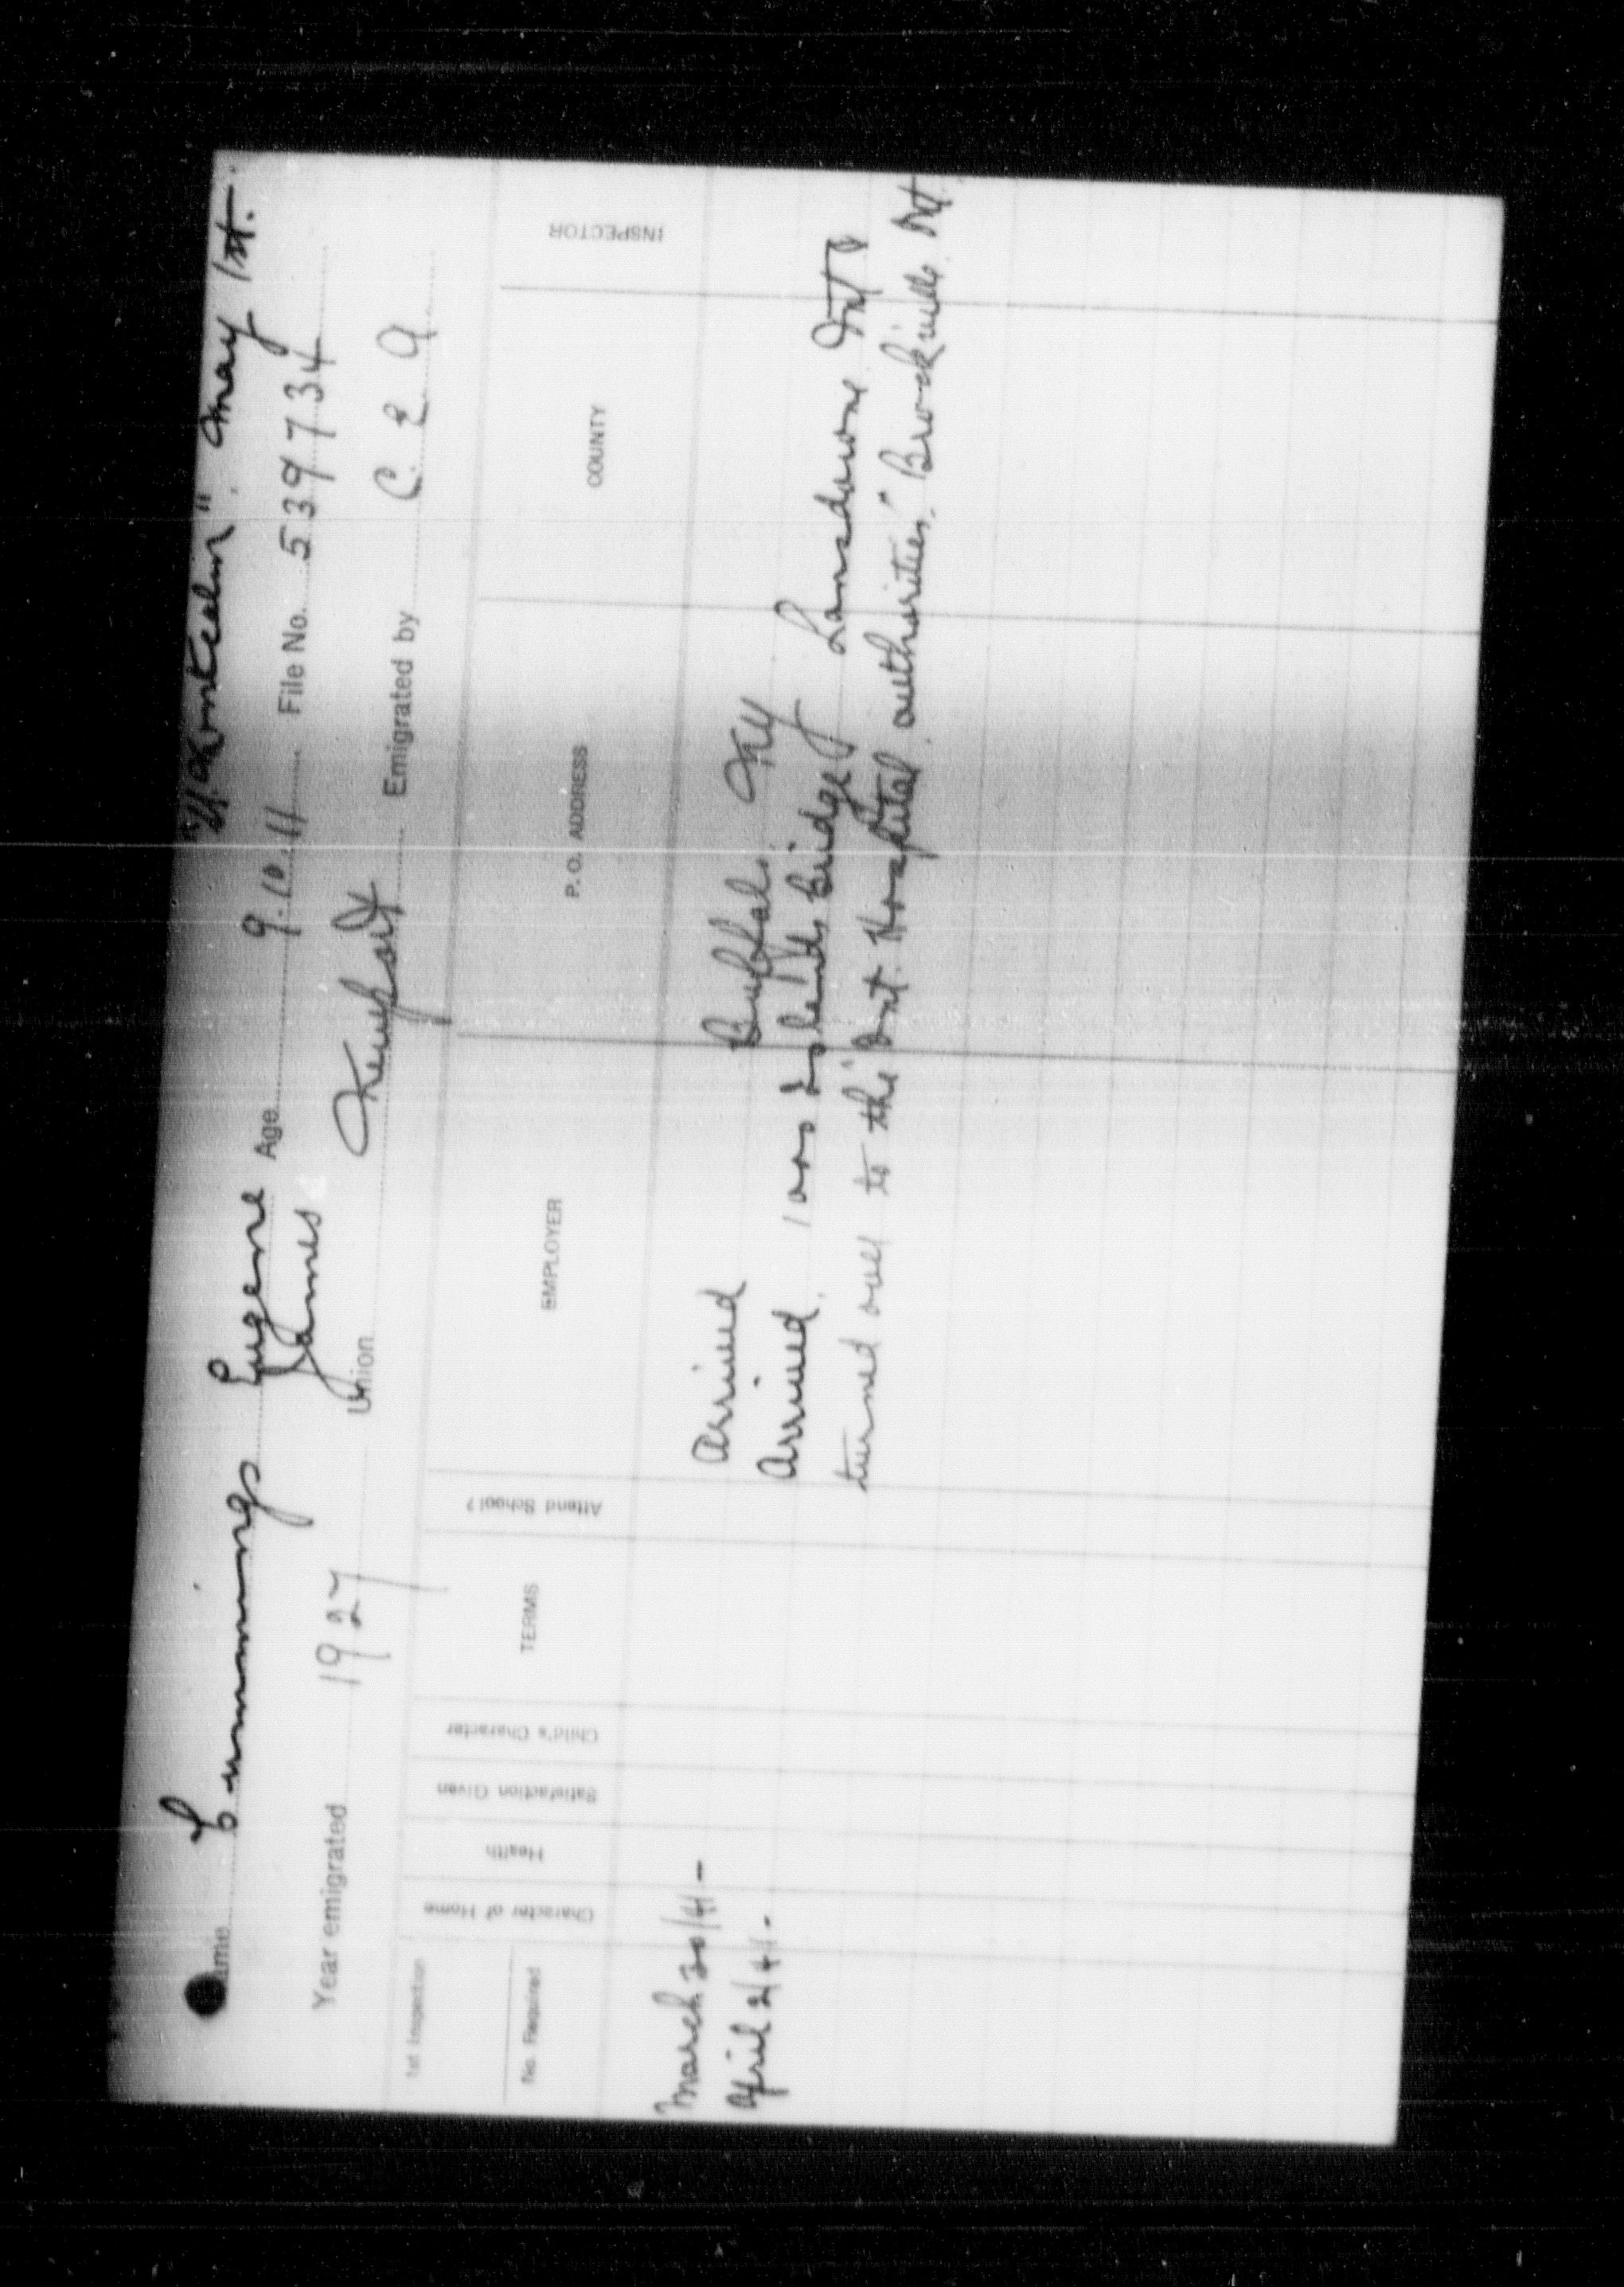 "Marskeelin" May 1st.
Name Cummings Eugene Age 9.10.11 File No. 539734
James
Year emigrated 1927 Union Newport Emigrated by C E A
1st Inspection
No. Required
Character of Home
Health
Satisfaction Given
Child's Character
TERMS
Attend School?
EMPLOYER
P. O. ADDRESS
COUNTY
INSPECTOR
March 20/41 - Arrived Buffalo NY
April 2/41. Arrived, 1000 Islands Bridge Lansdowne Ont &
turned over to the "Ont. Hospital authorities," Brockville Ont.